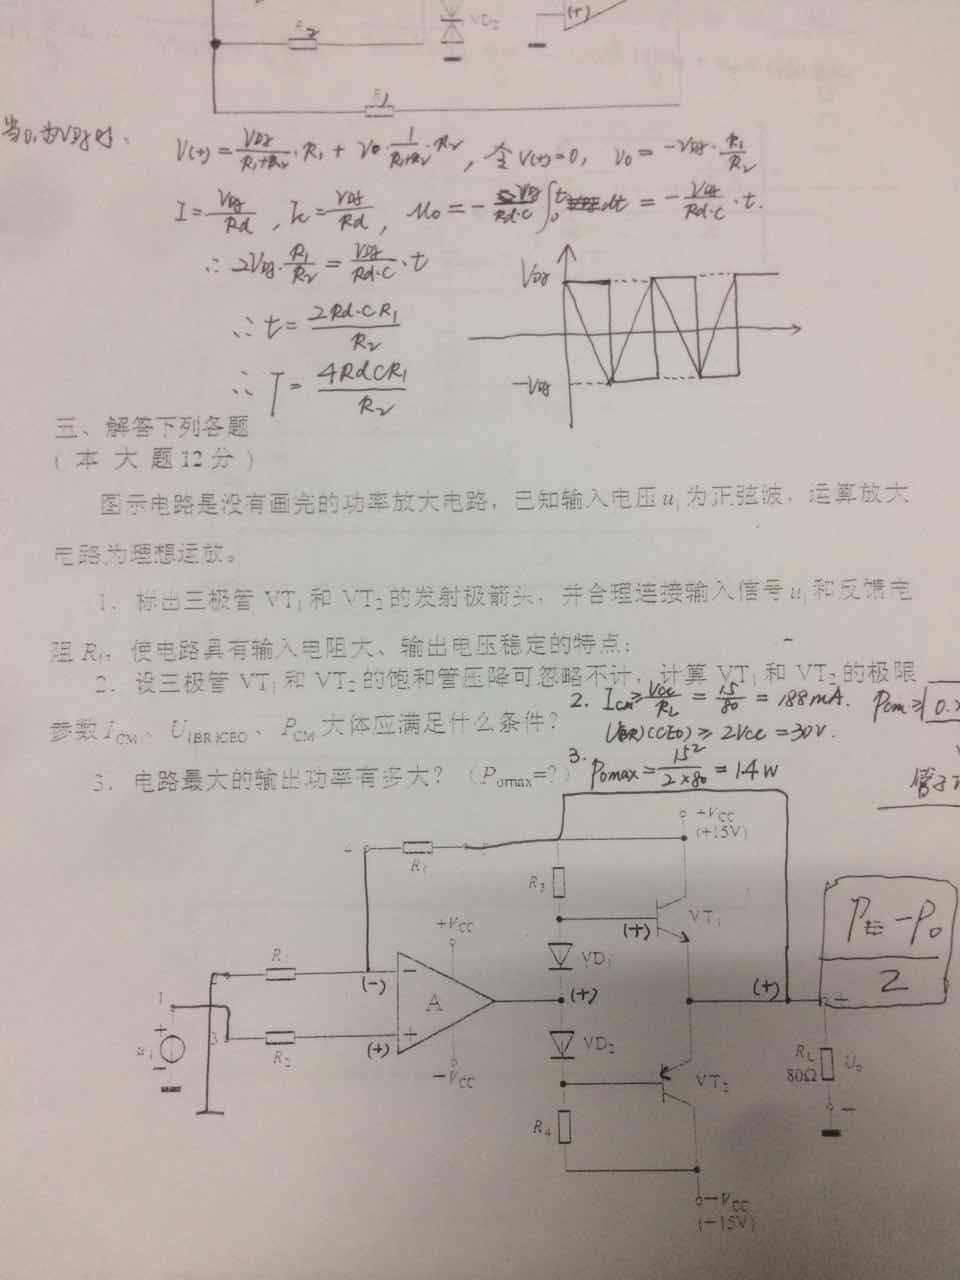 R2
VD2
(+)
R1
V(+)=VDz/(R1+R2)·R1+v0·1/(R1+R2)·R2, 令V(+)=0, v0=-VDz·R1/R2
I=VDz/Rd, Ic=VDz/Rd, u0=- dt=-VDz/(Rd·C)·t.
∴2VDz·R1/R2=VDz/(Rd·C)·t
∴t=2Rd·CR1/R2
∴T=4RdCR1/R2
VDz
-VDz
五、解答下列各题
(本大题12分)
图示电路是没有画完的功率放大电路,已知输入电压ui为正弦波,运算放大
电路为理想运放。
1. 标出三极管VT1和VT2的发射极箭头,并合理连接输入信号ui和反馈电
阻Rf,使电路具有输入电阻大、输出电压稳定的特点;
2. 设三极管VT1和VT2的饱和管压降可忽略不计,计算VT1和VT2的极限
2. Icm≥Vcc/RL=15/80=188mA. Pcm≥
参数ICM、U(BR)CEO、PCM大体应满足什么条件?
V(BR)(CEO)≥2Vcc=30V.
3. 电路最大的输出功率有多大?(Pomax=?)
3. Pomax=15²/(2×80)=1.4W
管子
+VCC
(+15V)
4
Rf
R3
VT1
(+)
+VCC
VD1
(PE-Po)/2
2
R1
(-)
A
(+)
(+)
+
1
3
+
ui
-
R2
(+)
-VCC
VD2
VT2
RL
80Ω
Uo
-
R4
-VCC
(-15V)